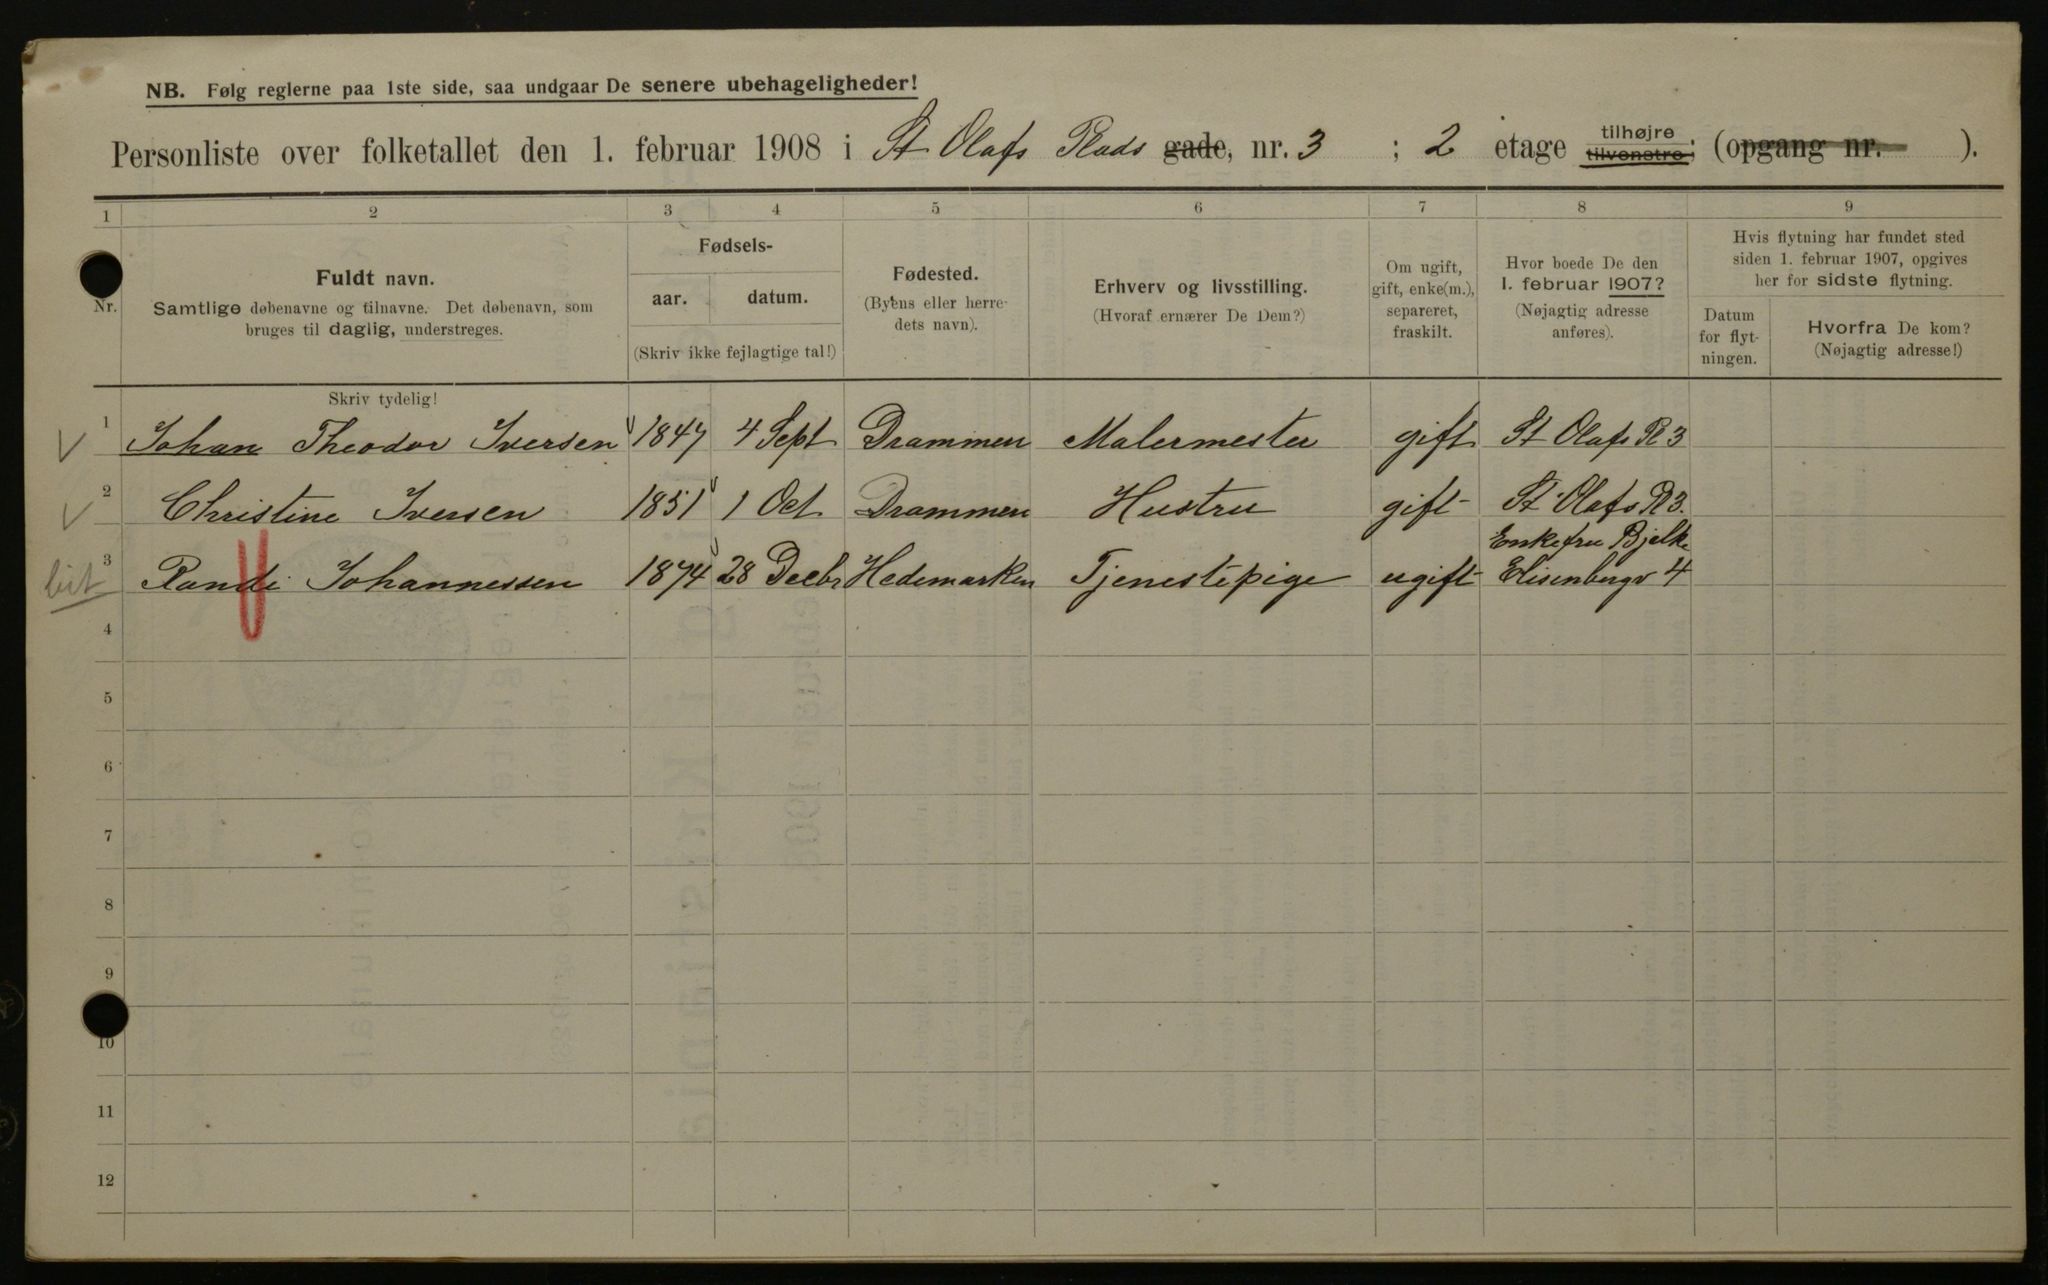 NB. Følg reglerne paa 1ste side, saa undgaar De senere ubehageligheder!
Personliste over folketallet den 1. februar 1908 i St Olafs Plads gade, nr. 3 ; 2 etage tilhøjre tilvenstre; (opgang nr. ).
1 2 3 4 5 6 7 8 9
Nr.
Fuldt navn.
Samtlige døbenavne og tilnavne. Det døbenavn, som
bruges til daglig, understreges.
Fødsels-
aar. datum.
(Skriv ikke fejlagtige tal!)
Fødested.
(Byens eller herre-
dets navn).
Erhverv og livsstilling.
(Hvoraf ernærer De Dem?)
Om ugift,
gift, enke(m.),
separeret,
fraskilt.
Hvor boede De den
1. februar 1907?
(Nøjagtig adresse
anføres).
Hvis flytning har fundet sted
siden 1. februar 1907, opgives
her for sidste flytning.
Datum
for flyt-
ningen.
Hvorfra De kom?
(Nøjagtig adresse!)
Skriv tydelig!
1 Johan Theodor Iversen 1847 4 Sept Drammen Malermester gift St Olafs Pl 3
2 Christine Iversen 1851 1 Oct Drammen Hustru gift St Olafs Pl 3.
Enkefru Bjelke
3 Randi Johannessen 1874 28 Decbr Hedemarken Tjenestepige ugift Elisenbergv 4
4
5
6
7
8
9
10
11
12